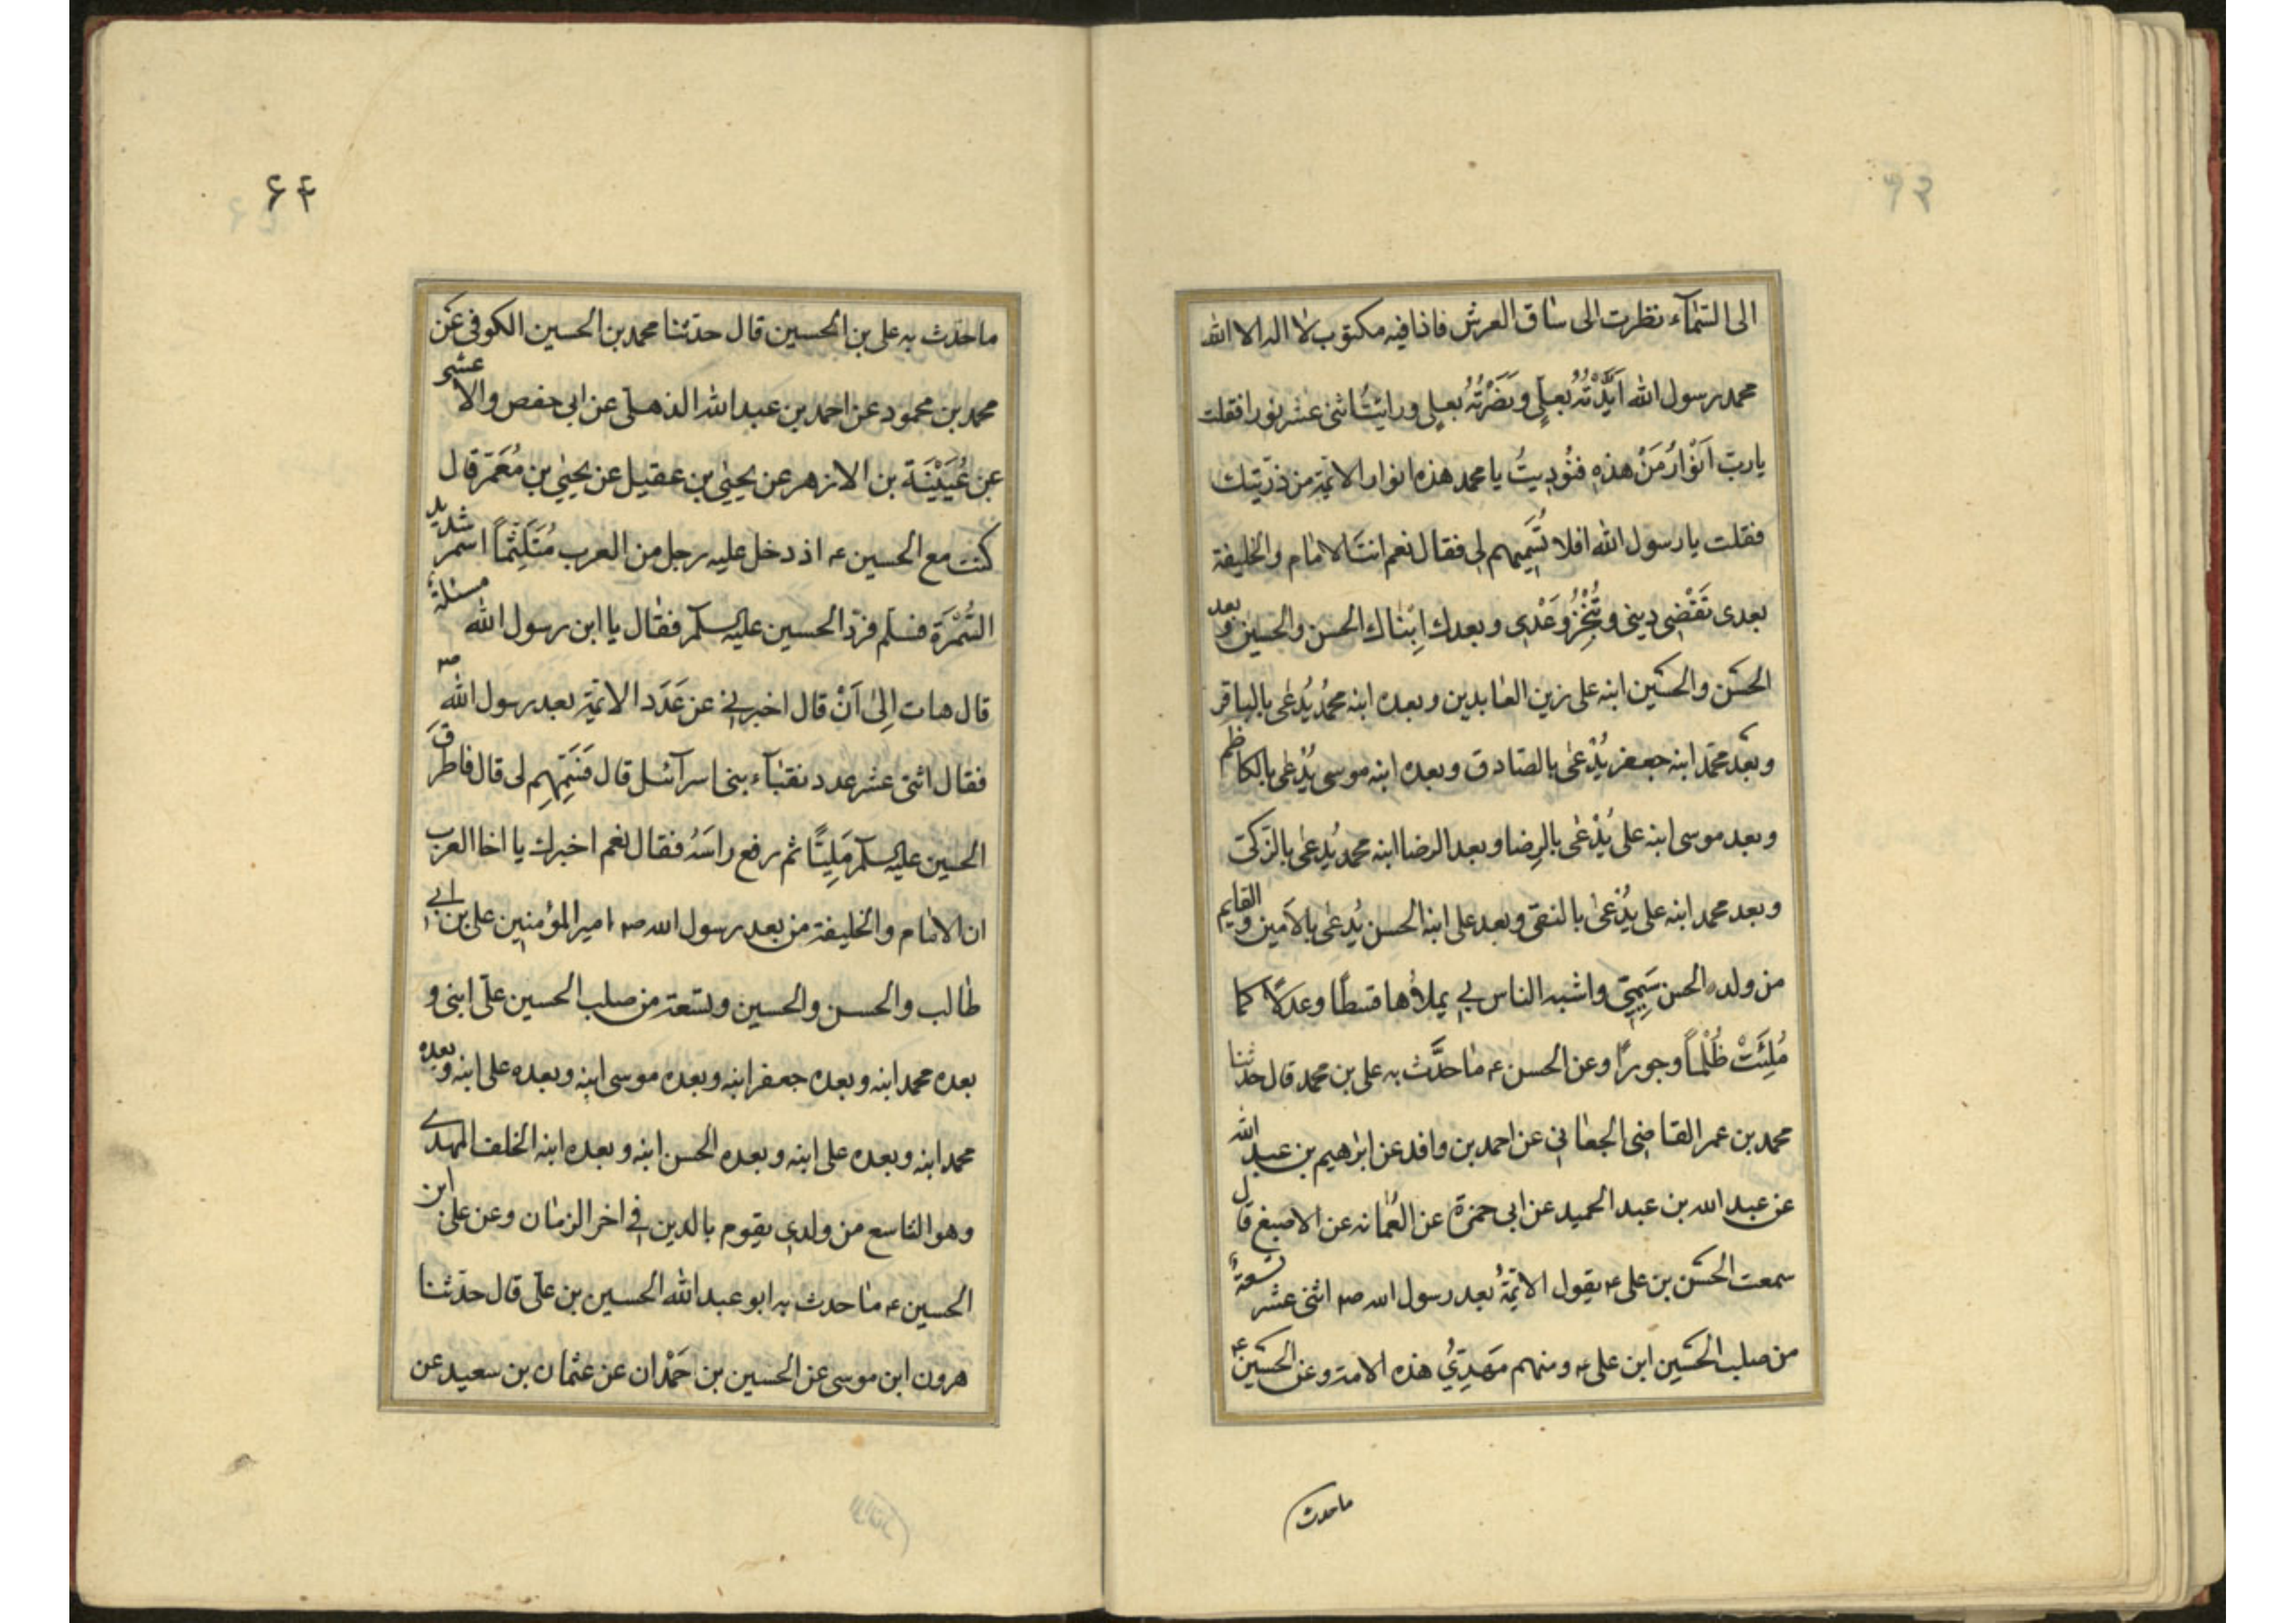 الى السّمآء نظرت الى ساق العرش فاذا فيه مكتوب لا اله الا الله
محمد رسول الله اَيَّدْتُهُ بعلٍي ونَصَرْتُهُ بعلٍي ورايتُ اثنى عشر نورا فقلت
يا ربّ اَنْوَارُ مَنْ هذه فنُودِيتُ يا محمد هذه انوار الائمّة من ذرّيتك
فقلت يا رسول الله افلا تُسَمِّيهم لى فقال نعم انت الامام والخليفة
بعدى تَقْضِى دينى وتُنْجِزُ وَعْدِى وبعدك اِبْنَاك الحسن والحسين وبعد
الحسَن والحسَين ابنه على زين العابدين وبعده ابنه محمدٌ يُدعٰى بالباقر
وبَعْد محمّد ابنه جعفر يُدْعٰى بالصّادق وبعده ابنه موسى يُدْعٰى بالكاظم
وبعد موسى ابنه على يُدْعٰى بالرِضا وبعد الرضا ابنه محمد يُدعٰى بالزكىّ
وبعد محمد ابنه على يُدْعٰى بالنقى وبعد على ابنه الحسن يُدعٰى بالاَمين والقايم
من ولده الحسن سَمِيّى واشبه الناس بى يملأُها قسطًا وعدلًا كما
مُلِئَتْ ظُلْماً وجورًا وعن الحسن ع ما حدَّث به على بن محمد قال حدثنا
محمد بن عمر القاضى الجعابى عن احمد بن وافد عن ابرٰهيم بن عبد الله
عن عبد الله بن عبد الحميد عن ابى حمزة عن العُمانه عن الاصبغ قال
سمعت الحسَن بن على ع يقول الائمّةُ بعد رسول الله ص اثنى عشر تسعةٌ
من صلب الحسَين ابن على ع ومنهم مَهدِىُّ هذه الامة وعن الحسَين ع
ما حدث
۶۴
ما حدّث به على بن الحسين قال حدّثنا محمد بن الحسين الكوفى عَن
محمد بن محمود عن احمد بن عبد الله الذهلىّ عن ابى حفص والاعشر
عن عُيَيْنَة بن الازهر عن يحيٰى بن عقيل عن يحيٰى بن مُعَمَر قال
كنت مع الحسين ع اذ دخل عليه رجل من العرب مُتَلَثِّماً اسمر شديد
السُّمْرَة فسلّم فردّ الحسين عليه السلام فقال يا ابن رسول الله مسئلةٌ
قال هات اِلىٰ اَنْ قال اخبرنى عن عَدَد الائمّة بعد رسول الله ص
فقال اثنى عشر عدد نقبآء بنى اسرآئيل قال فَسَمِّهِم لى قال فاطرقَ
الحسين عليه السلام مَلِيًّا ثم رفع راسَهُ فقال نعم اخبرك يا اخا العرب
ان الامام والخليفة من بعد رسول الله ص امير المؤمنين على بن ابى
طالب والحسن والحسين وتسعة من صلب الحسين علىّ ابنى و
بعده محمد ابنه وبعده جعفر ابنه وبعده موسى ابنه وبعده على ابنه وبعده
محمد ابنه وبعده على ابنه وبعده الحسن ابنه وبعده ابنه الخلف المهدى
وهو التاسع من ولدى يقوم بالدين فى اخر الزمان وعن على ابن
الحسين ع ما حدث به ابو عبد الله الحسين بن علىّ قال حدّثنا
هرون ابن موسى عن الحسين بن حَمْدان عن عثمان بن سعيد عن